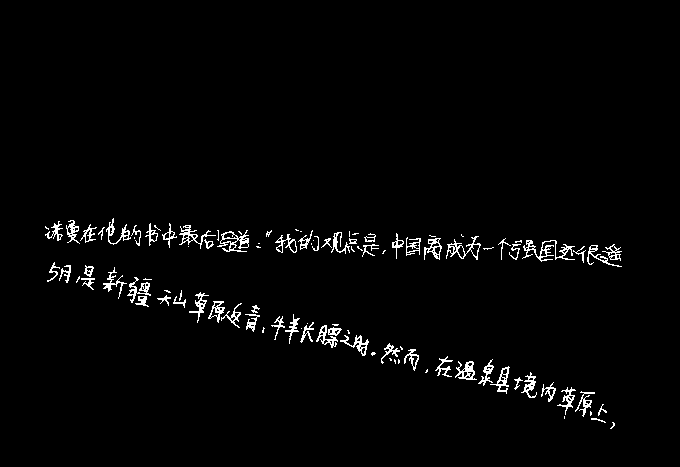 诺曼在他的书中最后写道:“我的观点是,中国离成为一个强国还很遥
5月是新疆天山草原返青,牛羊长膘之时。然而,在温泉县境内草原上,